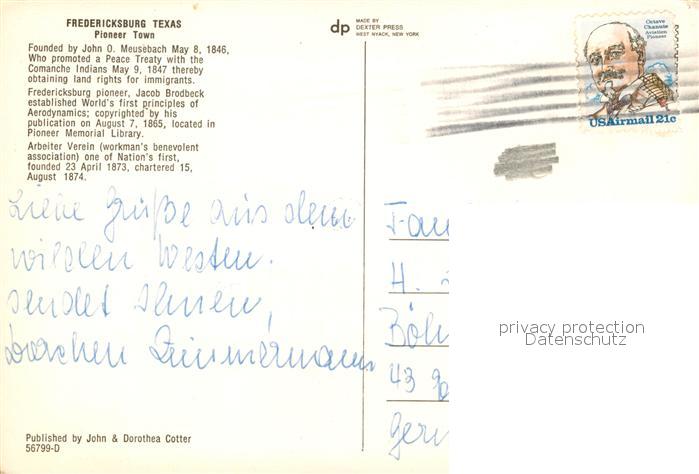 FREDERICKSBURG TEXAS
Pioneer Town
Founded by John O. Meusebach May 8, 1846,
Who promoted a Peace Treaty with the
Comanche Indians May 9, 1847 thereby
obtaining land rights for immigrants.
Fredericksburg pioneer, Jacob Brodbeck
established World's first principles of
Aerodynamics; copyrighted by his
publication on August 7, 1865, located in
Pioneer Memorial Library.
Arbeiter Verein (workman's benevolent
association) one of Nation's first,
founded 23 April 1873, chartered 15,
August 1874.
Liebe Grüße aus dem
wilden Westen.
sendet Ihnen,
Dorchen Zimmermann
Published by John & Dorothea Cotter
56799-D
dp
MADE BY
DEXTER PRESS
WEST NYACK, NEW YORK
Octave
Chanute
Aviation
Pioneer
USAirmail 21c
Fam
H.
Böh
43
Germ
privacy protection
Datenschutz